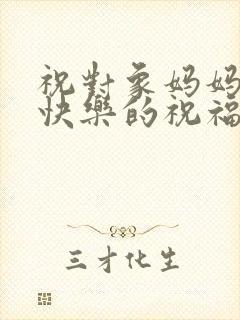 祝對象妈妈
快樂的祝福
三才化生